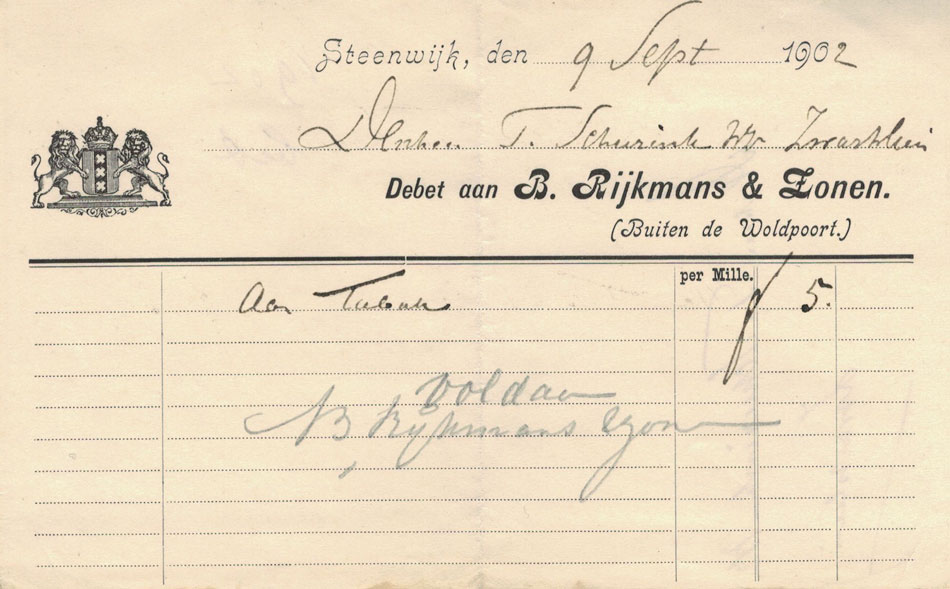 Steenwijk, den 9 Sept 1902
T. Schurink
Debet aan B. Rijkmans & Zonen.
(Buiten de Woldpoort.)
per Mille.
Aan Tabak f 5.
Voldaan
B, Rijkmans & Zonen